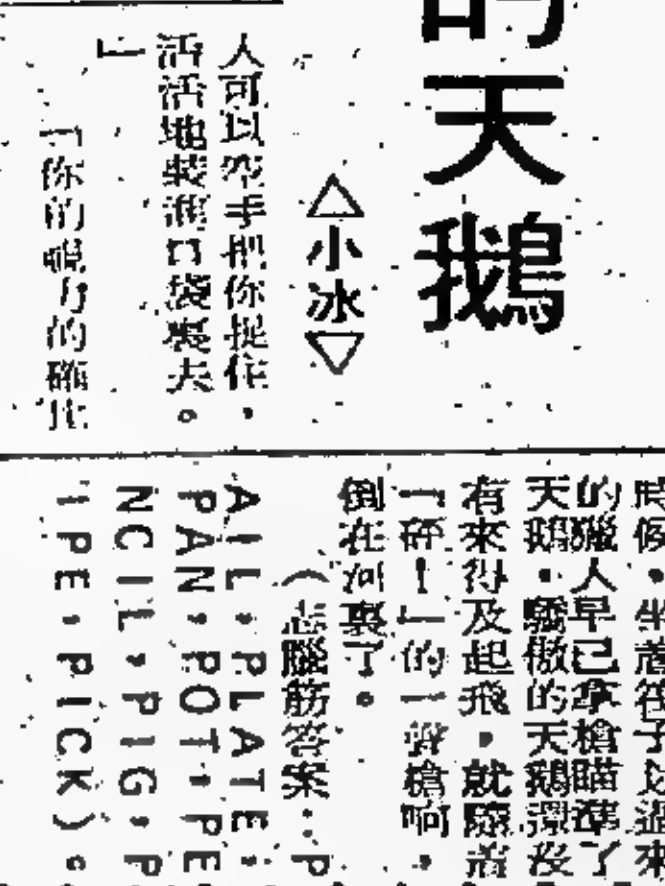 的天鵝
△小冰▽
人可以空手把你捉住，
活活地裝進口袋裏去。
」
「你的視力的確比
時候，坐着筏子以過來
的獵人早已拿槍瞄準了
天鵝，驕傲的天鵝還沒
有來得及起飛，就隨着
「砰！」的一聲槍响，
倒在河裏了。
（腦筋答案：P
AIL，PLATE，
PAN，POT，PE
NCIL，PIG，P
IPE，PICK）。